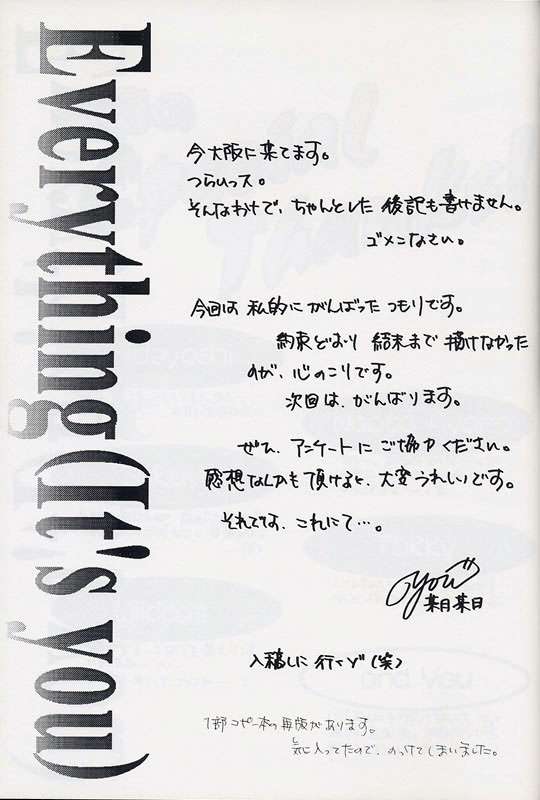 Everything (It's you)
今大阪に来てます。
つらいっス。
そんなわけで、ちゃんとした後記も書けません。
ゴメンなさい。
今回は私的にがんばったつもりです。
約束どおり結末まで描けなかった
のが、心のこりです。
次回は、がんばります。
ぜひ、アンケートにご協力ください。
感想なんかも頂けると、大変うれしいです。
それでは、これにて…。
you
某月某日
入稿しに行くゾ(笑)
1部コピー本の再版があります。
気に入ってたので、のっけてしまいました。